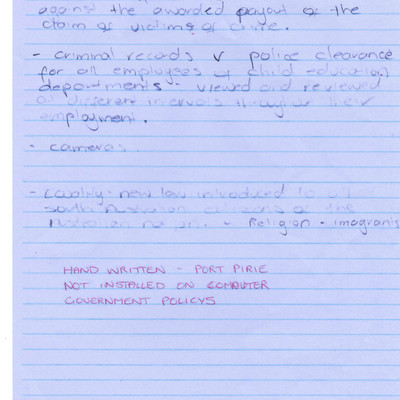 against the awarded payout of the
claim of victims of crime.
- criminal records v police clearance
for all employees of child education
departments - viewed and reviewed
at different intervals through their
employment.
- cameras.
- Equality - new law introduced to all
South Australian citizens of the
Australian nation. - Religion - imagranis
HAND WRITTEN - PORT PIRIE
NOT INSTALLED ON COMPUTER
GOVERNMENT POLICYS